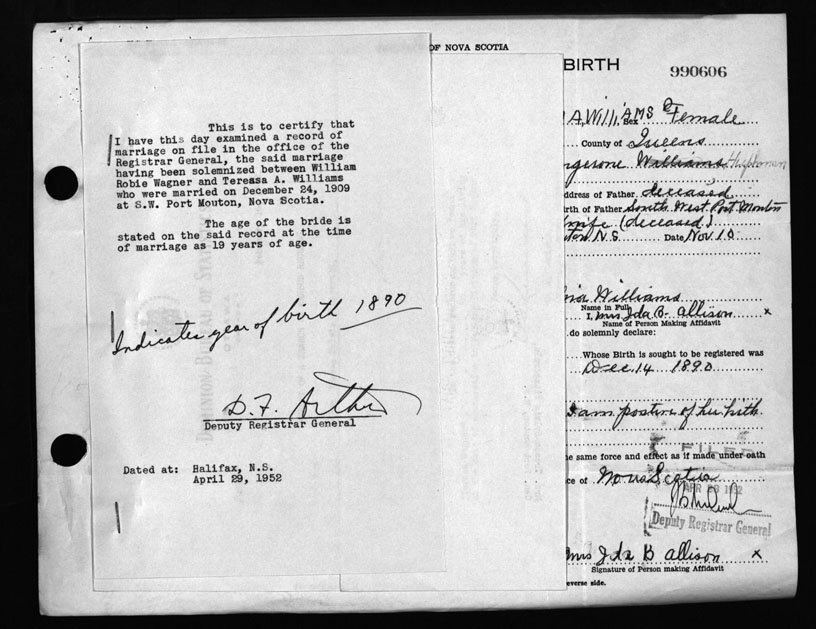 This is to certify that
I have this day examined a record of
marriage on file in the office of the
Registrar General, the said marriage
having been solemnized between William
Robie Wagner and Tereasa A. Williams
who were married on December 24, 1909
at S.W. Port Mouton, Nova Scotia.
The age of the bride is
stated on the said record at the time
of marriage as 19 years of age.
Indicates year of birth 1890
D. F. Arthur
Deputy Registrar General
Dated at: Halifax, N.S.
April 29, 1952
OF NOVA SCOTIA
BIRTH
990606
A. WILLIAMS Sex Female
County of Queens
Williams
ddress of Father deceased
irth of Father South West Port Mouton
(deceased)
N.S. Date Nov. 10
Williams
Name in Full
I, Mrs Ida B. Allison x
Name of Person Making Affidavit
do solemnly declare:
Whose Birth is sought to be registered was
Dec. 14 1890
I am positive of her birth.
he same force and effect as if made under oath
FILED
ce of Nova Scotia
APR 1952
Deputy Registrar General
Mrs Ida B Allison x
Signature of Person making Affidavit
everse side.